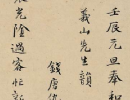 壬辰元旦奉和
義山先生韻
錢唐
光陰過客忙